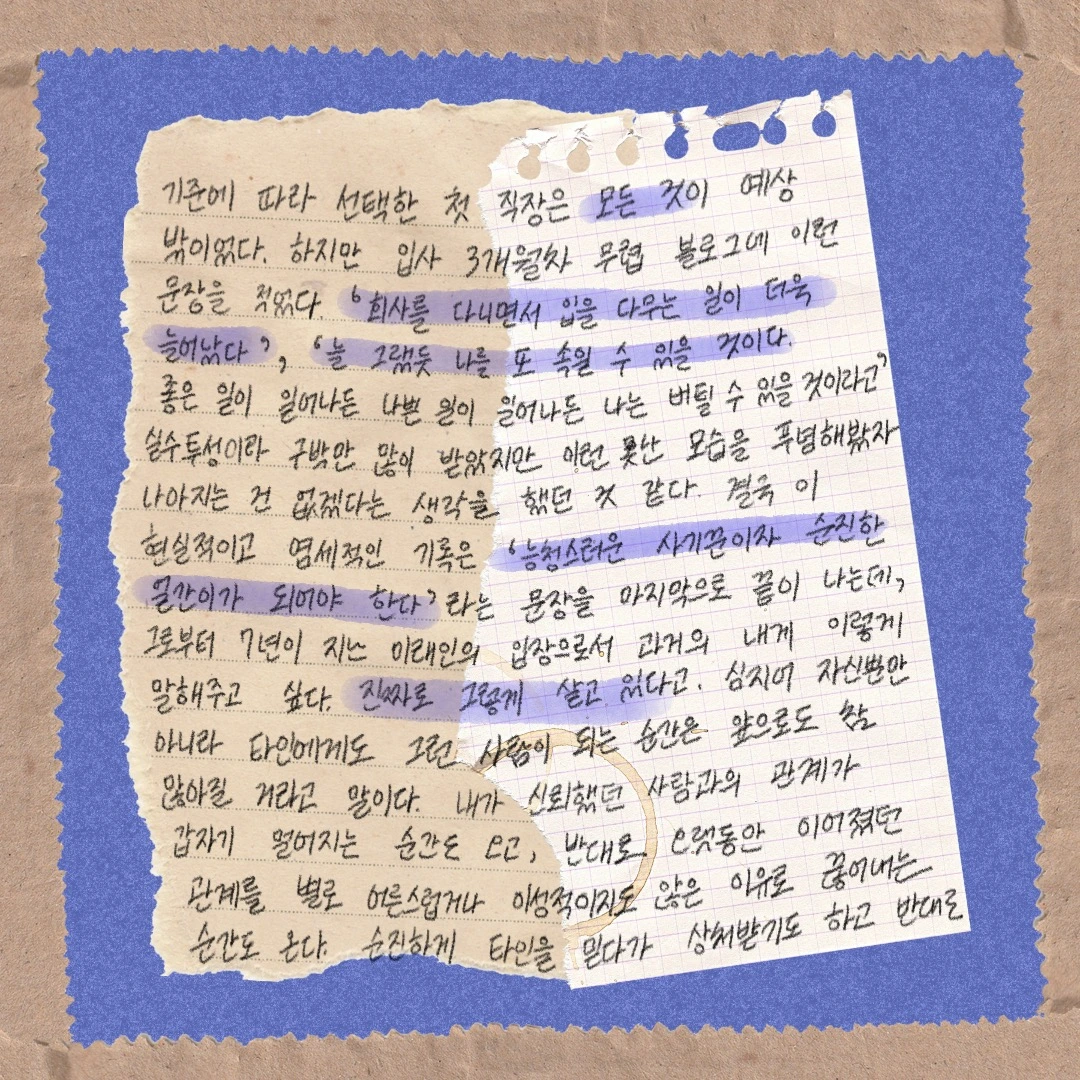 기준에 따라 선택한 첫 직장은 모든 것이 예상
밖이었다. 하지만 입사 3개월차 무렵 블로그에 이런
문장을 적었다. ‘회사를 다니면서 입을 다무는 일이 더욱
늘어났다’, ‘늘 그랬듯 나를 또 속일 수 있을 것이다.
좋은 일이 일어나든 나쁜 일이 일어나든 나는 버틸 수 있을 것이라고’
실수투성이라 구박만 많이 받았지만 이런 못난 모습을 푸념해봤자
나아지는 건 없겠다는 생각을 했던 것 같다. 결국 이
현실적이고 염세적인 기록은 ‘능청스러운 사기꾼이자 순진한
인간이가 되어야 한다’라는 문장을 마지막으로 끝이 나는데,
그로부터 7년이 지난 미래인의 입장으로서 과거의 내게 이렇게
말해주고 싶다. 진짜로 그렇게 살고 있다고. 심지어 자신뿐만
아니라 타인에게도 그런 사람이 되는 순간은 앞으로도 참
많아질 거라고 말이다. 내가 신뢰했던 사람과의 관계가
갑자기 멀어지는 순간도 오고, 반대로 오랫동안 이어졌던
관계를 별로 어른스럽거나 이성적이지도 않은 이유로 끊어내는
순간도 온다. 순진하게 타인을 믿다가 상처받기도 하고 반대로